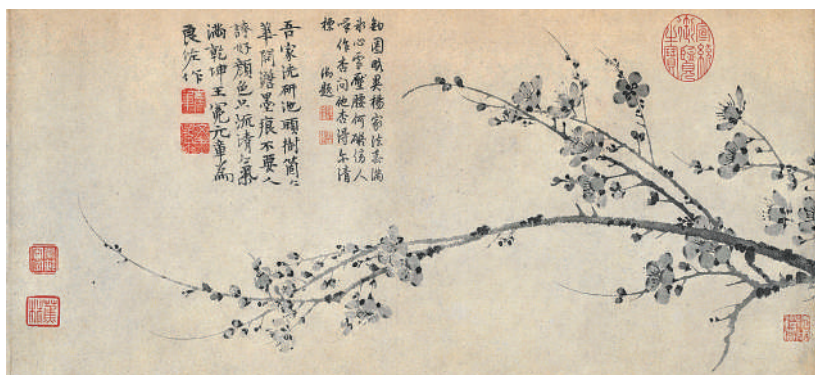 乾隆御覽之寶
鉤圈略異楊家法春滿
冰心雪壓腰何礙傷人
嘲作杏問他杏得尔清
標 御題
吾家洗研池頭樹箇〻
華開澹墨痕不要人
誇好顏色只流清氣
滿乾坤王冕元章為
良佐作
蕉林